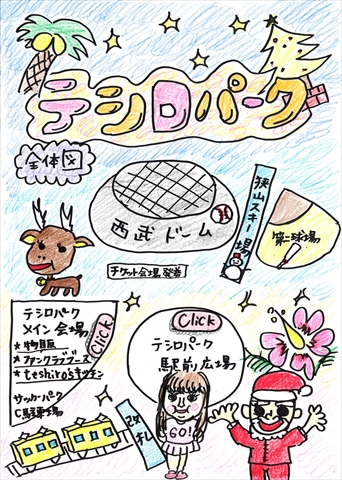 テシロパーク
全体図
西武ドーム
狭山スキー場
第二球場
チケット会場発券
テシロパーク
メイン会場
★物販
★ファンクラブブース
★teshiro'sキッチン
サッカーパーク
C駐車場
Click
Click
テシロパーク
駅前広場
改札
GO!